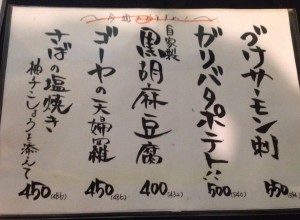 づけサーモン刺
550
ガリバタポテト!!
500
自家製
黒胡麻豆腐
400
ゴーヤの天婦羅
450 (486)
さばの塩焼き
柚子こしょうを添えて
450 (486)